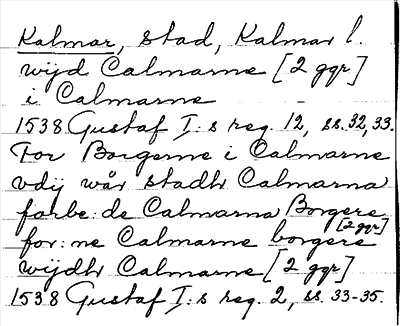 Kalmar, stad, Kalmar l.
wijd Calmarne [2 ggr]
i Calmarne
1538 Gustaf I:s reg. 12, ss. 32, 33.
For Borgerne i Calmarne
vdij wår stadh Calmarna
forbe:de Calmarna Borgere
for:ne Calmarne borgere [2 ggr]
wijdh Calmarne [2 ggr]
1538 Gustaf I:s reg. 2, ss. 33-35.